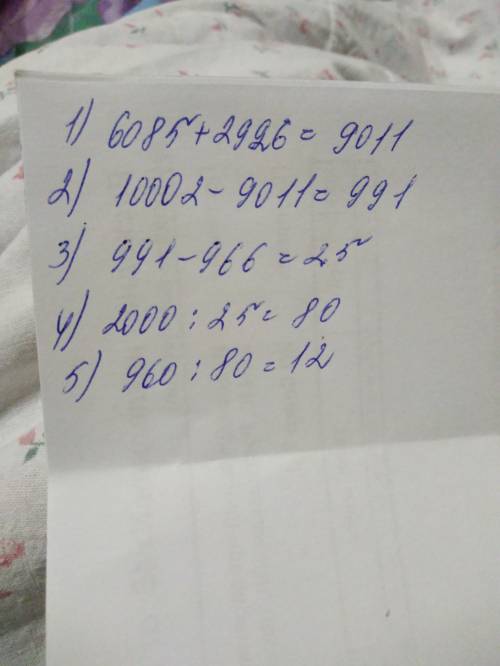 1) 6085+2926= 9011
2) 10002-9011=991
3) 991-966=25
4) 2000:25=80
5) 960:80=12